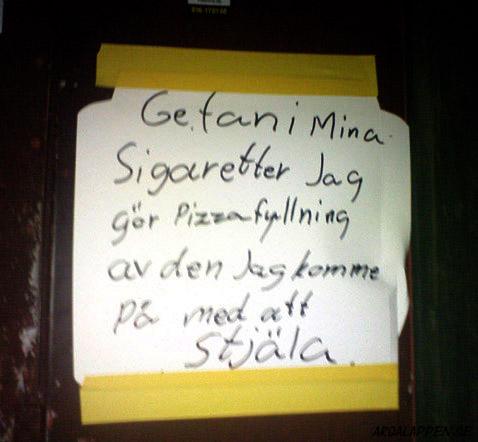 Ge.fan i Mina.
Sigaretter Jag
gör Pizzafyllning
av den Jag komme
på med att
stjäla.
ARGALAPPEN.SE